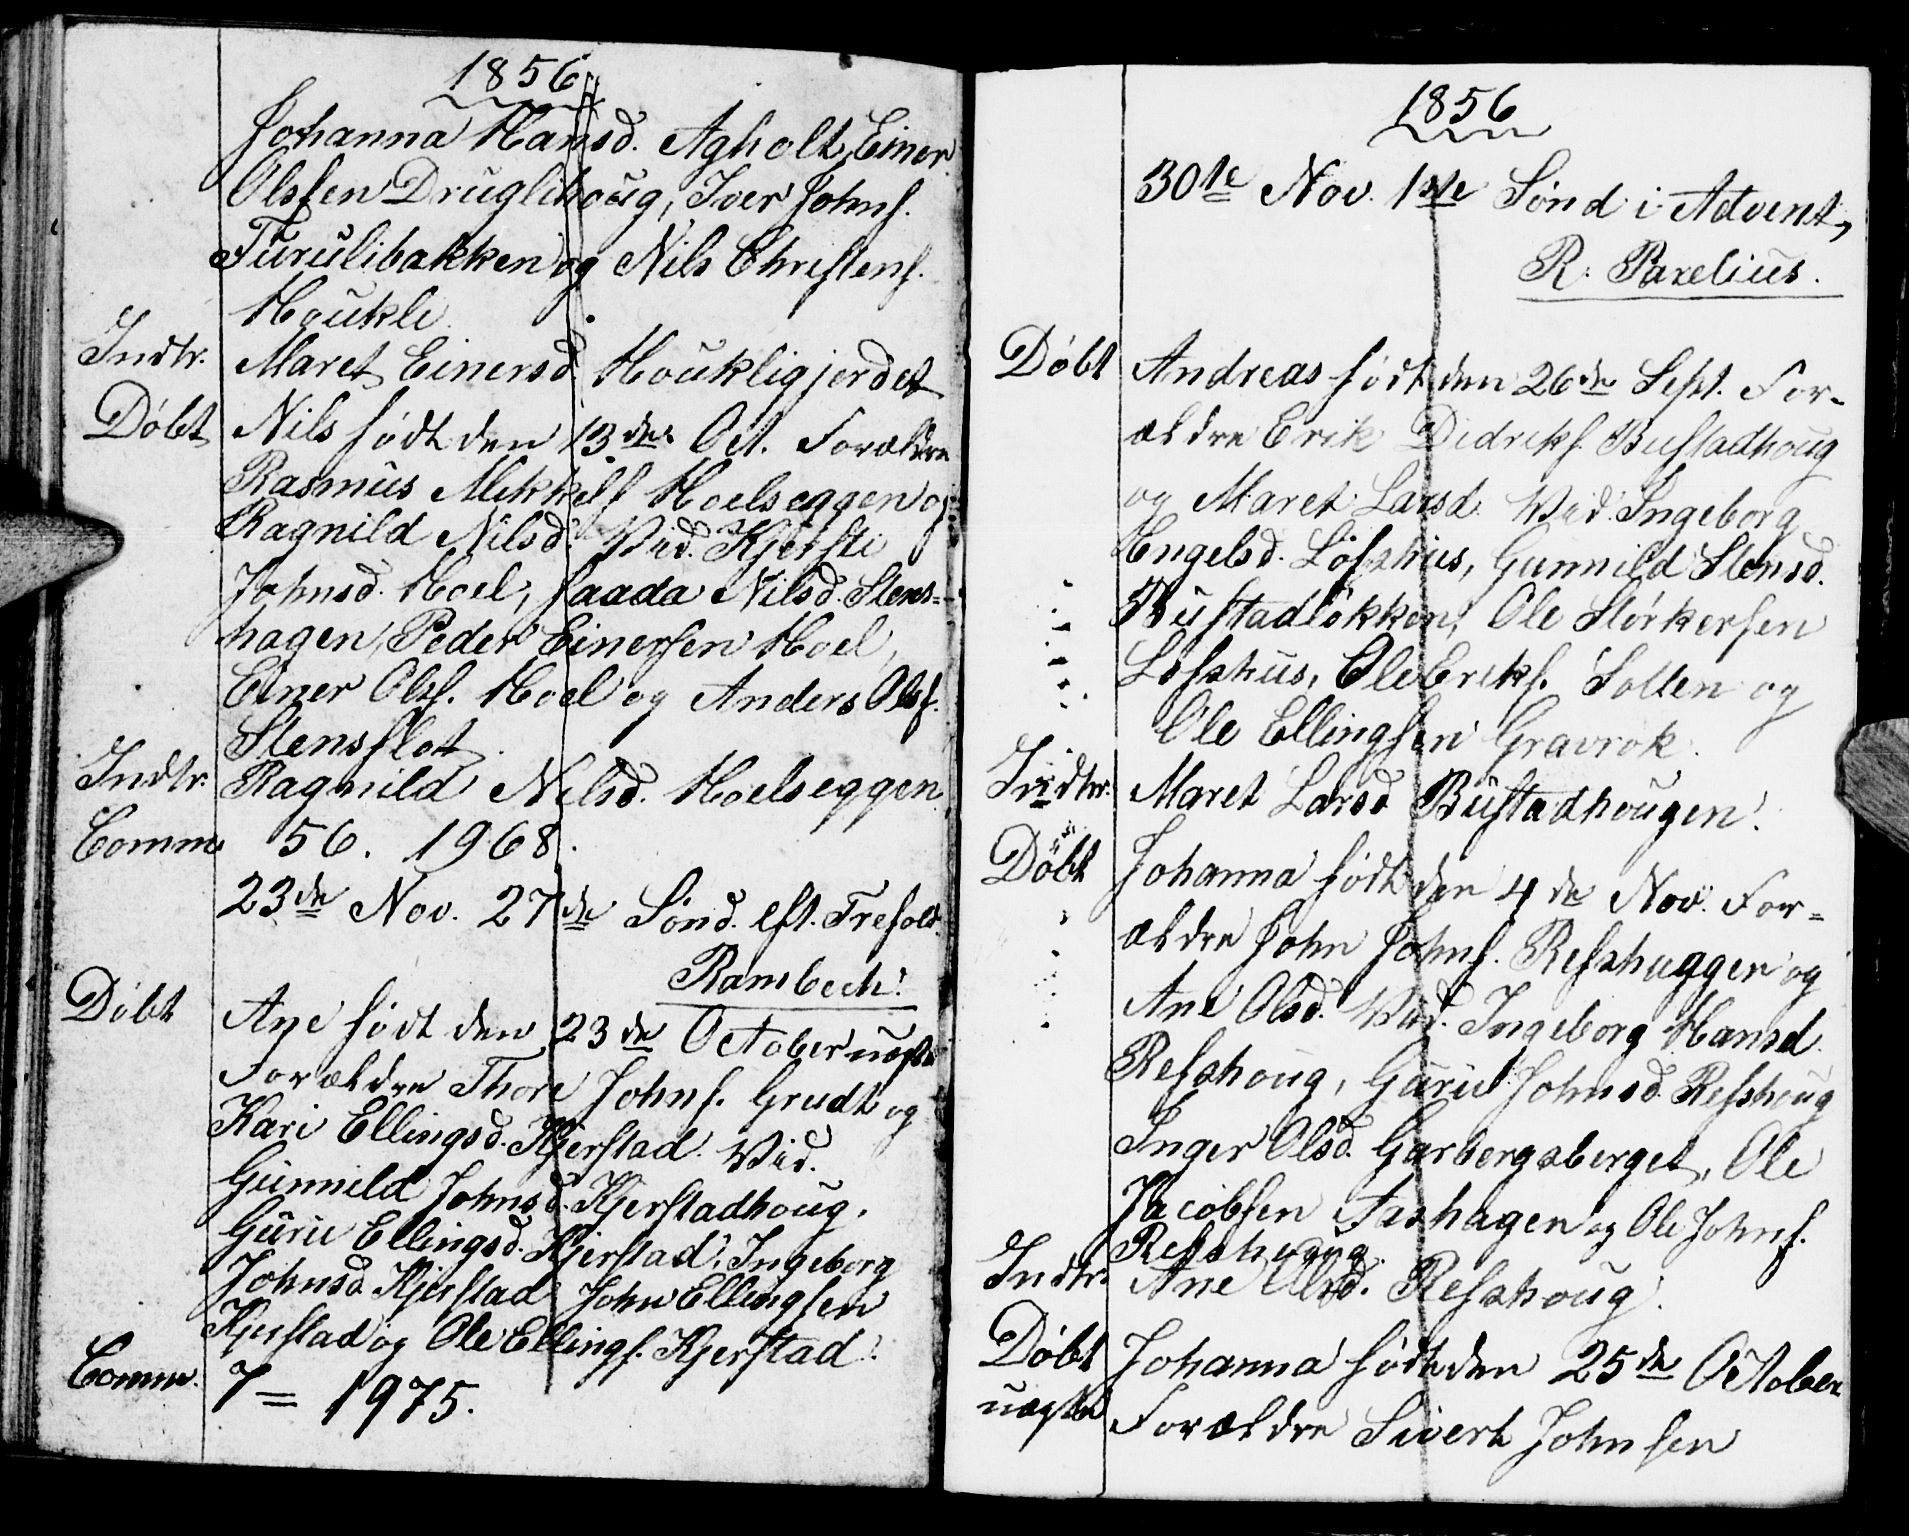 1856
Johanna Hansd. Agholt, Einer
Olssen Druglihoug, Iver Johns.
Furulibakken og Nils Christens.
Houkli.
Indtr. Maret Einersd Houkligjerdet
Døbt Nils født den 13de Oct. Forældre
Rasmus Mikkels Hoelseggen og
Ragnild Nilsd. Vid. Kjersti
Johnsd. Hoel, Nilsd. Stens-
hagen, Peder Einersen Hoel,
Einer Ols. Hoel og Anders Ols.
Stensflot.
Indtr. Ragnild Nilsd. Hoelseggen
Comm. 56. 1968.
23de Nov. 27de Sönd. eft. Trefold.
Rambech.
Døbt Ane født den 23de October uægte
Forældre Thore Johns. Grudt og
Kari Ellingsd. Kjerstad. Vid.
Gunnild Johnsd. Kjerstadhoug,
Guru Ellingsd. Kjerstad, Ingeborg
Johnsd. Kjerstad John Ellingsen
Kjerstad og Ole Ellings. Kjerstad.
Comm. 7 = 1975.
1856
30te Nov. 1ste Sönd i Advent,
R. Parelius.
Døbt Andreas født den 26de Sept. For-
ældre Erik Didriks. Bustadhoug
og Maret Larsd. Vid. Ingeborg
Engelsd. Löfshus, Gunnild Stensd.
Bustadløkken, Ole Störkersen
Löfshus, Ole Eriks. Solten og
Ole Ellingsen Gravrok.
Indtr. Maret Larsd Bustadhougen.
Döbt Johanna født den 4de Nov. For-
ældre John Johns. Refshuggen og
Ane Olsd. Vid. Ingeborg Hansd.
Refshoug, Guru Johnsd. Refshoug
Inger Olsd. Garbergsberget, Ole
Jacobsen Aashagen og Ole Johns.
Refshoug
Indtr. Ane Olsd. Refshoug.
Døbt Johanna født den 25de October
uægte Forældre Sivert Johnsen